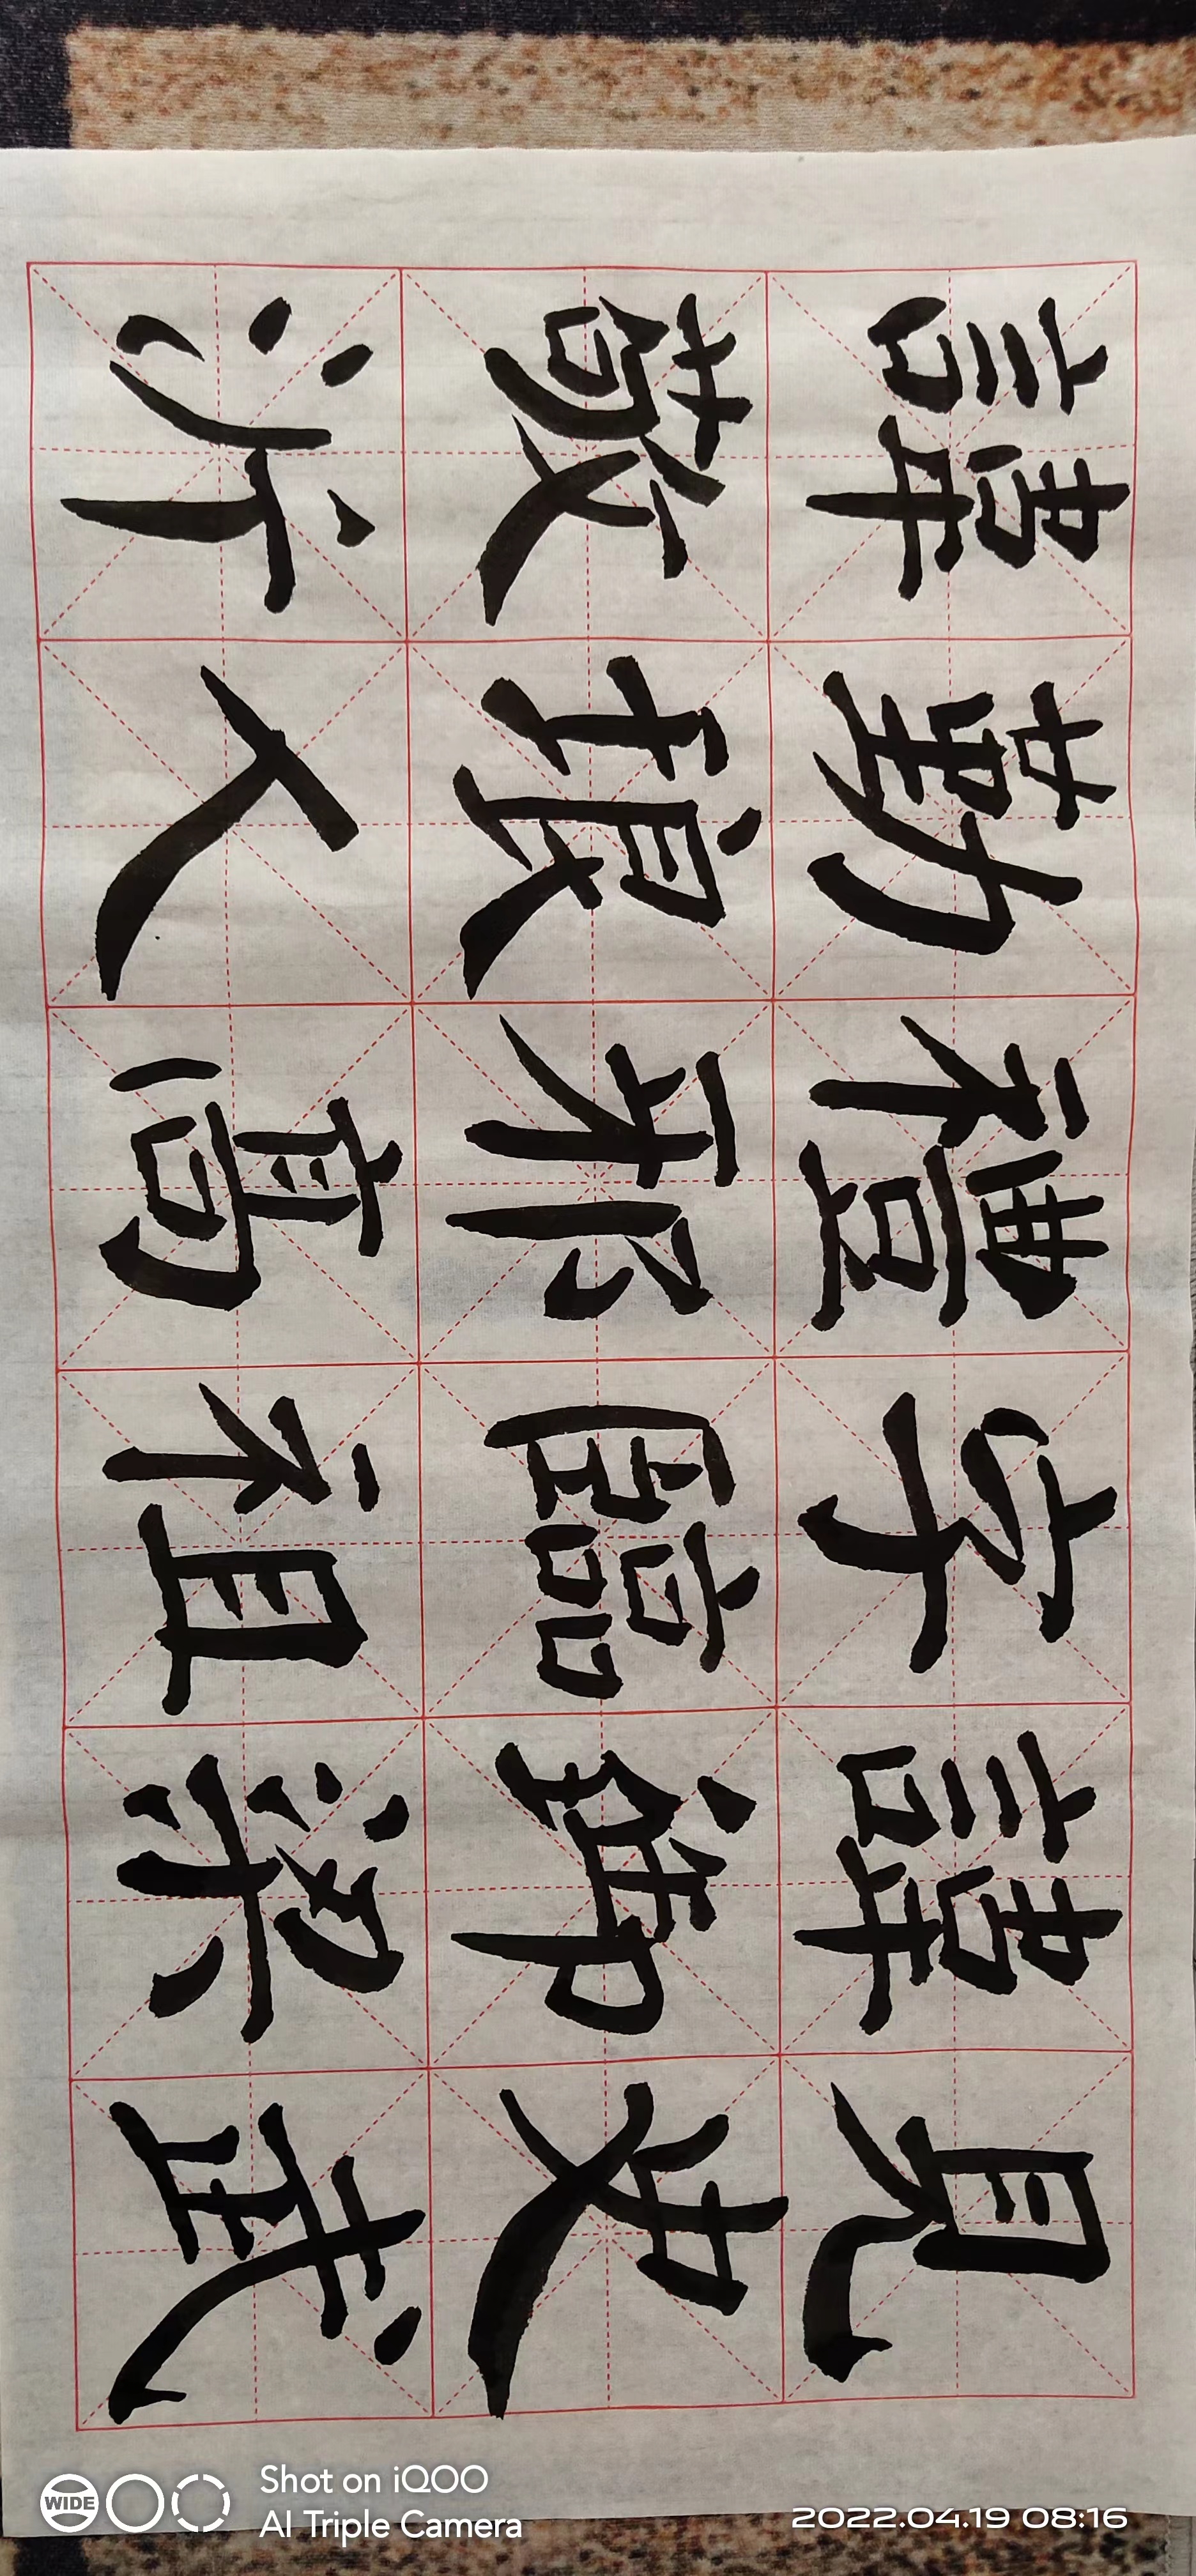 諱勤禮字諱見
敬琅邪臨御史
沂人高祖梁武
Shot on iQOO
AI Triple Camera
WIDE
2022.04.19 08:16